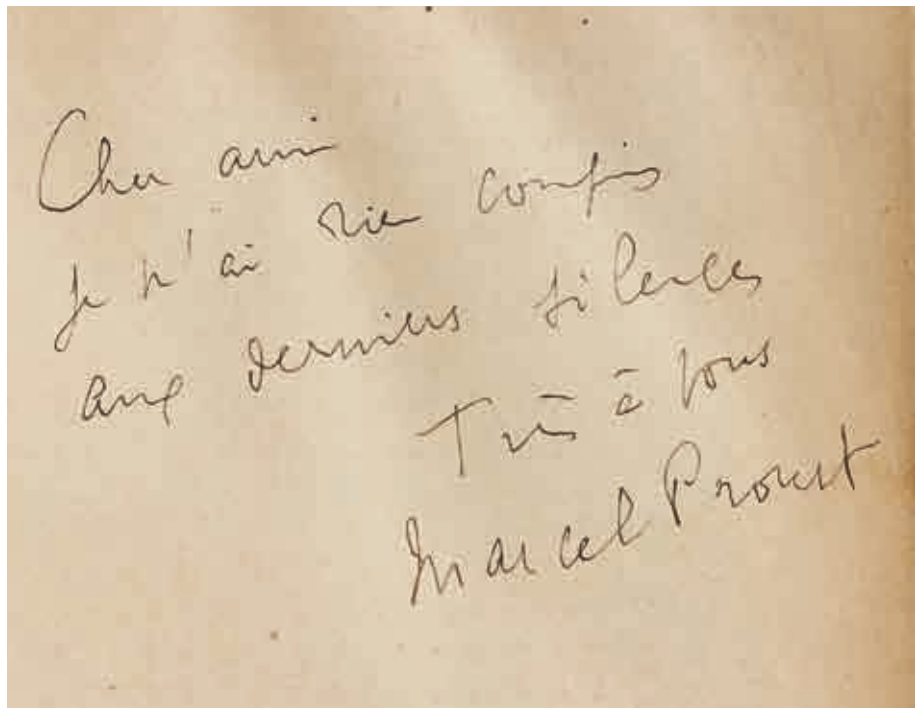 Cher ami
je n'ai rien compris
aux derniers silences
Très à vous
Marcel Proust